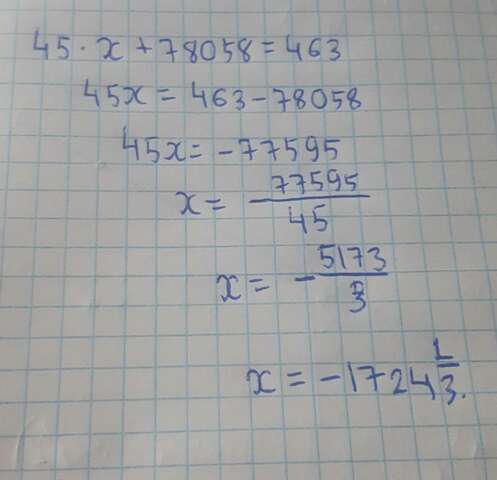 45 · x + 78058 = 463
45x = 463 - 78058
45x = -77595
x = - 77595/45
x = - 5173/3
x = -1724 1/3.